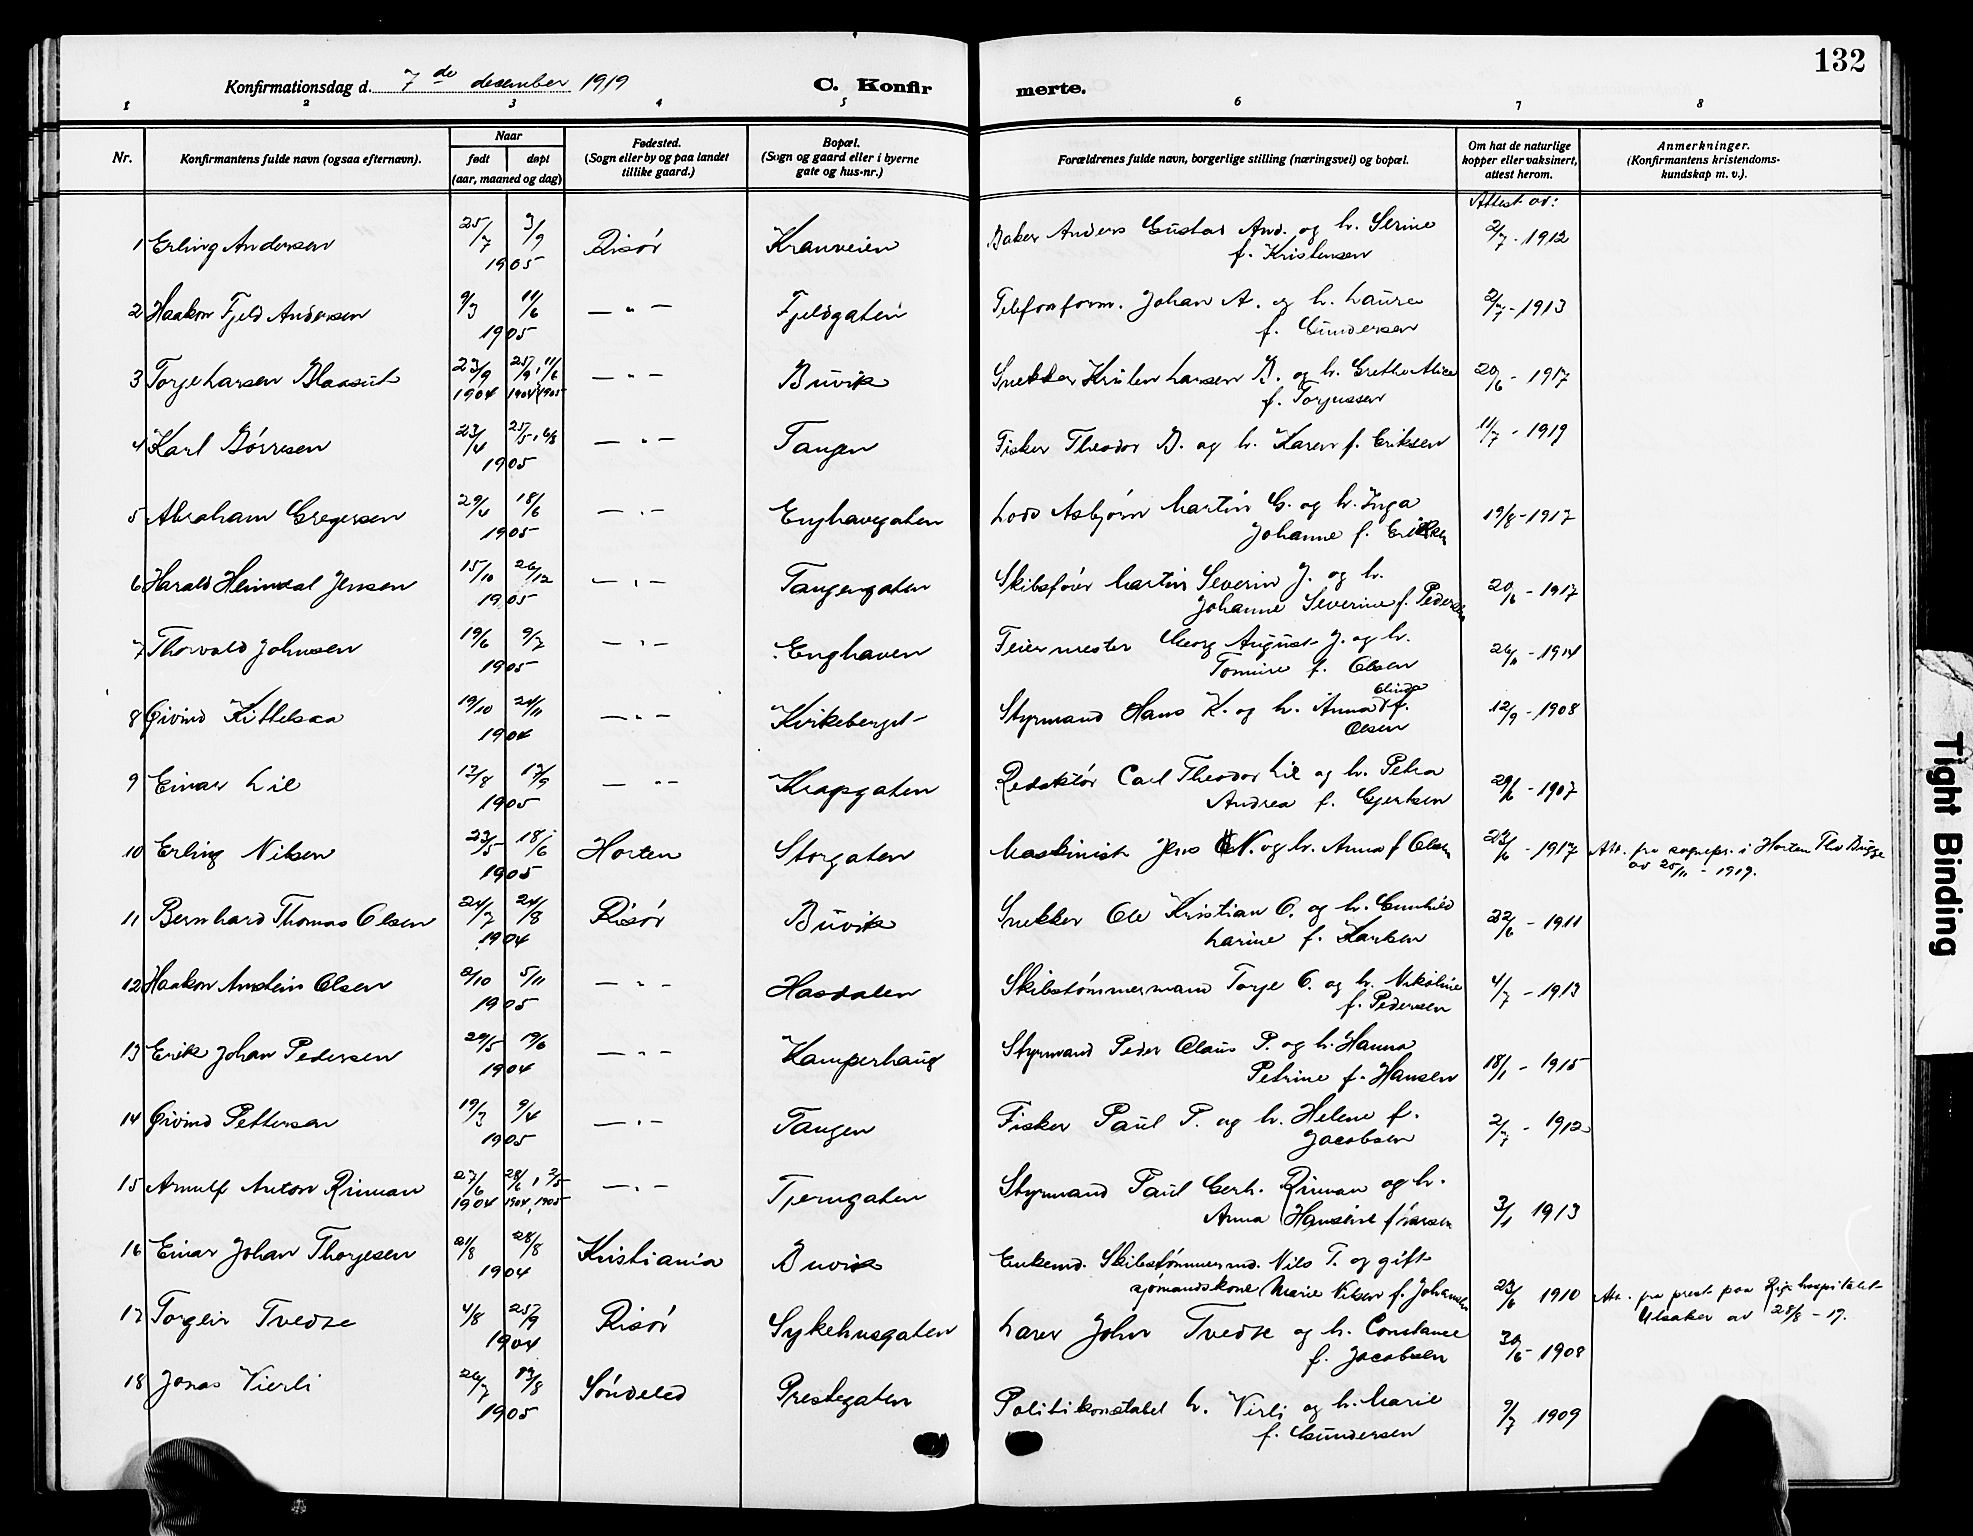 132
Konfirmationsdag d. 7de desember 1919 C. Konfirmerte.
1 2 3 4 5 6 7 8
Nr. Konfirmantens fulde navn (ogsaa efternavn). Naar født døpt (aar, maaned og dag) Fødested. (Sogn eller by og paa landet tillike gaard.) Bopæl. (Sogn og gaard eller i byerne gate og hus-nr.) Forældrenes fulde navn, borgerlige stilling (næringsvei) og bopæl. Om hat de naturlige kopper eller vaksinert, attest herom. Anmerkninger. (Konfirmantens kristendoms-kundskap m. v.).
Attest av:
1 Erling Andersen 25/7 3/9 1905 Risør Kranveien Baker Anders Gustav And. og h. Serine f. Kristensen 2/7 - 1912
2 Haakon Fjeld Andersen 9/3 11/6 1905 — " — Fjeldgaten Telefonform. Johan A. og h. Laura f. Gundersen 2/7 - 1913
3 Torje Larsen Blaasut 23/9 1904 25/9, 11/6 1904, 1905 — " — Buvik Snekker Larsen B. og h. Grethe Alice f. Torjussen 20/6 - 1917
4 Karl Børresen 23/4 25/5, 6/8 1905 — " — Tangen Fisker Theodor B. og h. Karen f. Eriksen 11/7 - 1919
5 Abraham Gregersen 29/4 18/6 1905 — " — Enghavegaten Lods Asbjørn Martin G. og h. Inga Johanne f. Eriksen 19/8 - 1917
6 Harald Heimdal Jensen 15/10 26/12 1905 — " — Tangengaten Skibsfører Martin Severin J. og h. Johanne Severine f. Pedersen 20/6 - 1917
7 Thorvald Johnsen 19/6 9/7 1905 — " — Enghaven Feiermester Georg August J. og h. Tomine f. Olsen 26/11 - 1914
8 Øivind Kittelsen 19/10 24/11 1904 — " — Kirkeberget Styrmand Hans K. og h. Anna f. Olsen 12/9 - 1908
9 Einar Lie 12/8 17/9 1905 — " — Kragsgaten Redaktør Carl Theodor Lie og h. Petra Andrea f. Gjertsen 29/6 - 1907
10 Erling Nilsen 23/5 18/6 1905 Horten Storgaten Maskinist Jens N. og h. Anna f. Olsen 23/6 - 1917 Att. fra sognepr. i Horten Th. Bugge av 25/11 - 1919.
11 Bernhard Thomas Olsen 24/7 24/8 1904 Risør Buvik Snekker Ole Kristian O. og h. Gunhild Larine f. Karlsen 22/6 - 1911
12 Haakon Anstein Olsen 2/10 5/11 1905 — " — Hasdalen Skibstømmermand Torje O. og h. Nikoline f. Pedersen 4/7 - 1913
13 Erik Johan Pedersen 29/5 19/6 1904 — " — Kamperhaug Styrmand Peder Claus P. og h. Hanna Petrine f. Hansen 18/1 - 1915
14 Øivind Pettersen 19/3 9/4 1905 — " — Tangen Fisker Paul P. og h. Helene f. Jacobsen 2/7 - 1912
15 Arnulf Anton Rinman 27/6 1904 28/6, 2/5 1904, 1905 — " — Tjerngaten Styrmand Paul Gerh. Rinman og h. Anna Hansine f. Larsen 3/1 1913
16 Einar Johan Thorjesen 21/8 28/8 1904 Kristiania Buvik Enkemd. Skibstømmermd. Nils T. og gift sjømandskone Marie Nilsen f. Johansen 23/6 1910 Att. fra prest paa Rigshospitalet Ulsaker av 28/8 - 19.
17 Torgeir Tvedte 4/8 25/9 1904 Risør Sykehusgaten Lærer John Tvedte og h. Constance f. Jacobsen 30/6 - 1908
18 Jonas Vierli 26/7 13/8 1905 Søndeled Prestegaten Politikonstabel h. Virli og h. Marie f. Gundersen 9/7 1909
Tight Binding